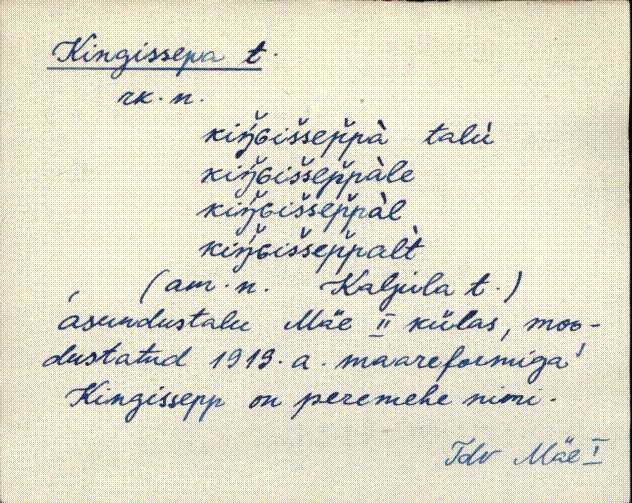 Kingissepa t.
rk. n.
kiŋ̆ɢiššep̌p̌à talù
kiŋ̆ɢiššep̌p̌àle
kiŋ̆ɢiššep̌p̌àl
kiŋ̆ɢiššep̌p̌alt̀
(am. n. Kaljula t.)
asundustalu Mäe II külas, moo-
dustatud 1919. a. maareformiga
Kingissepp on peremehe nimi.
Jdv Mäe I